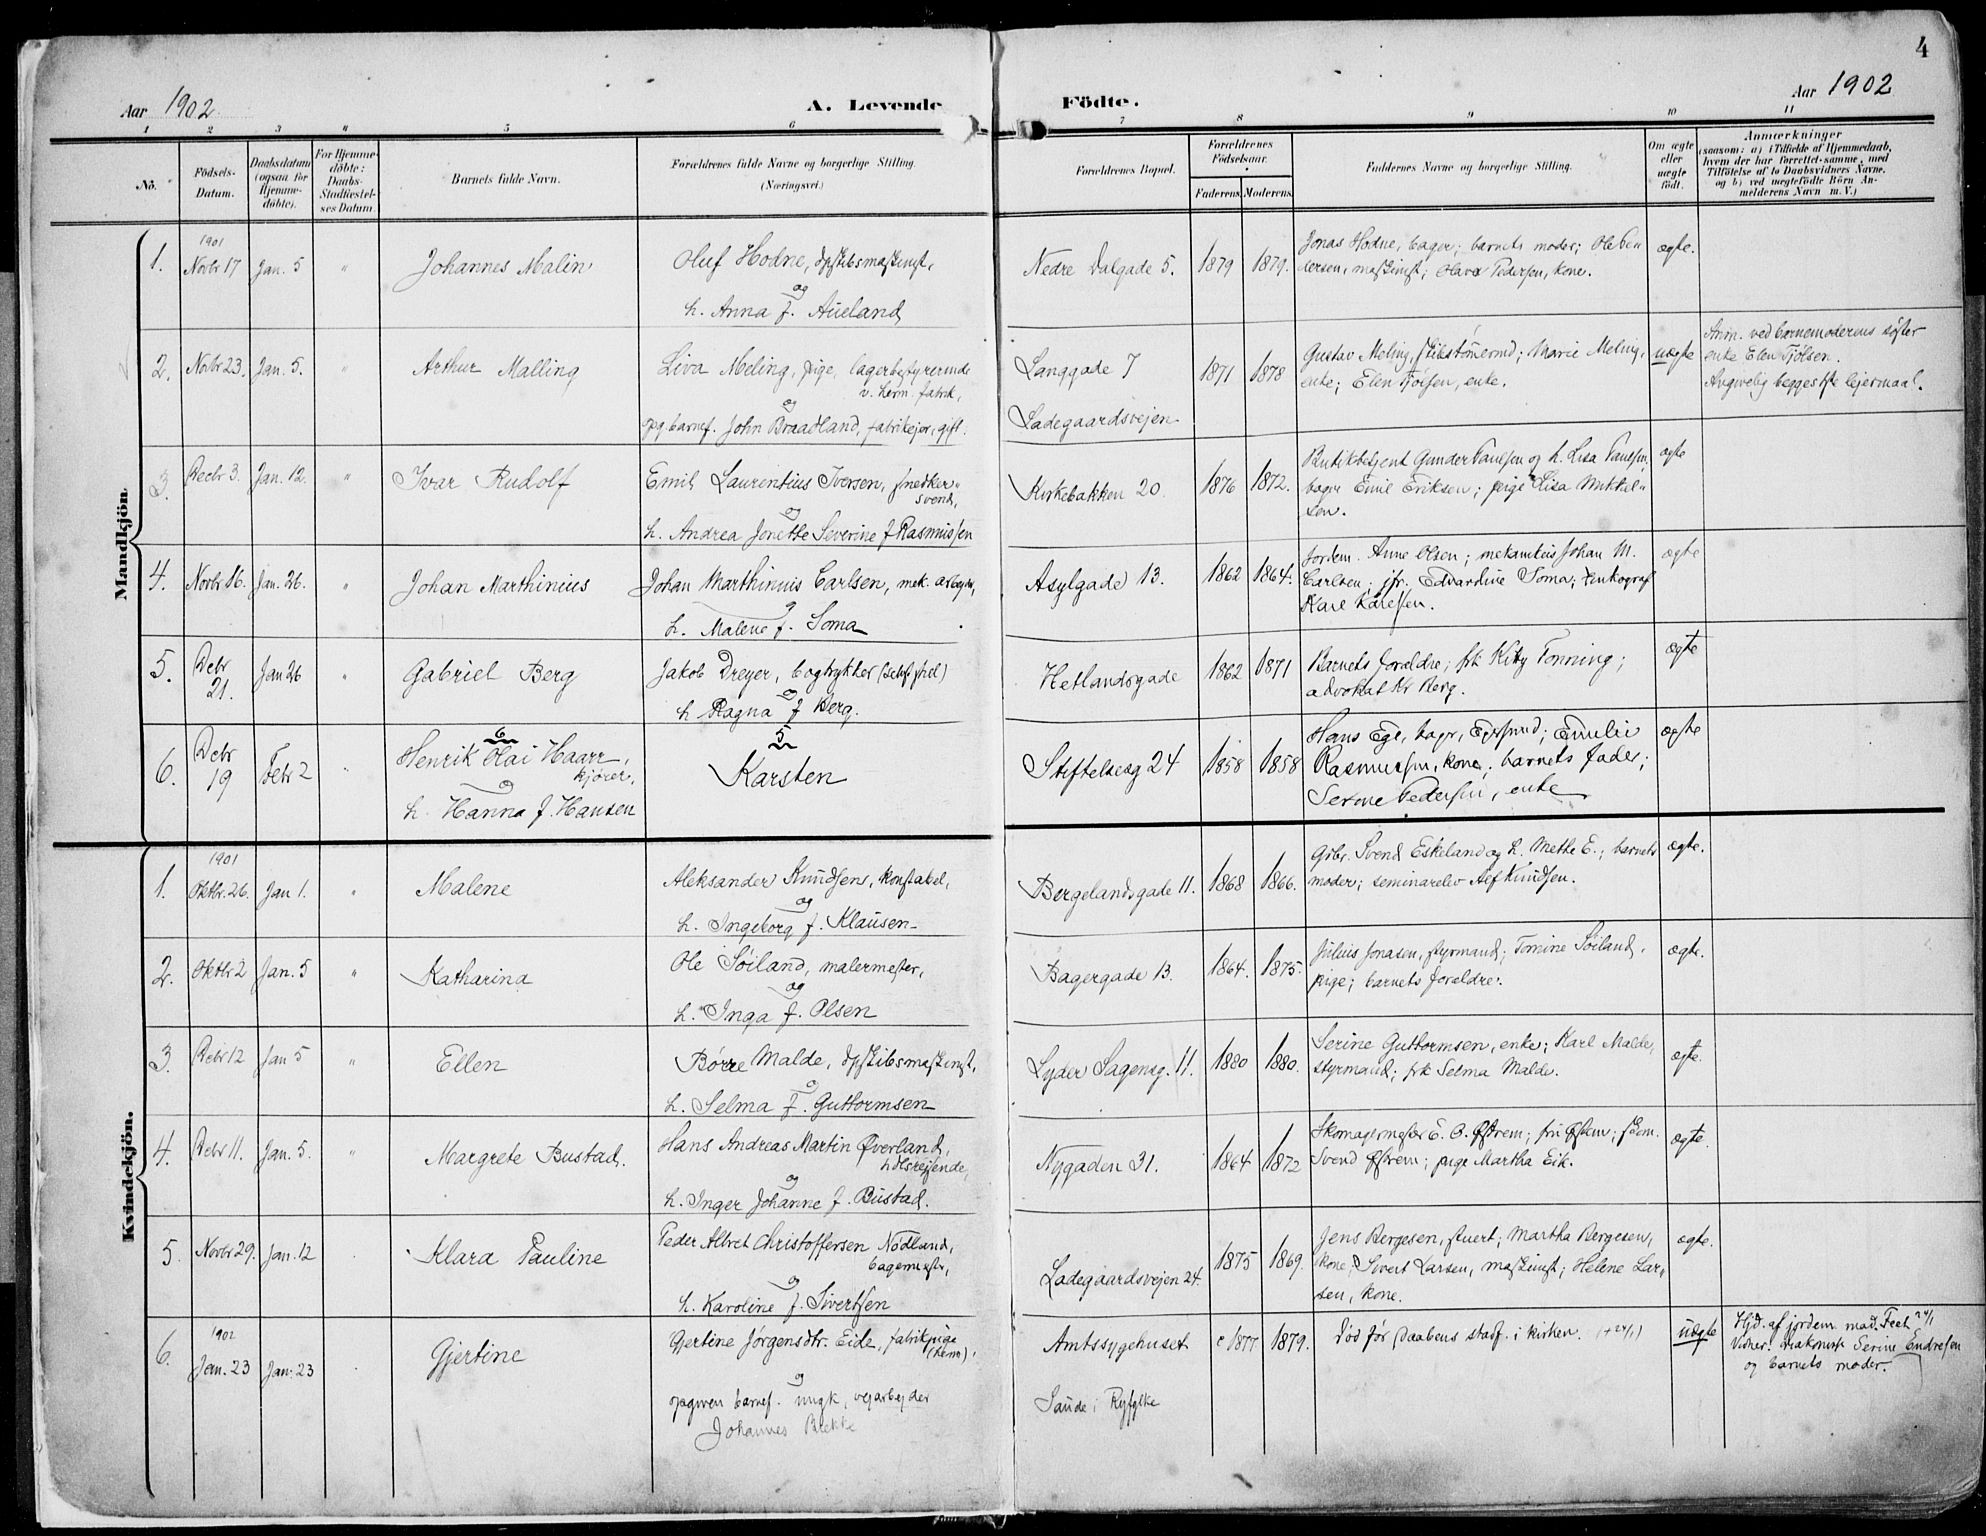 4
Aar 1902
A. Levende
Födte.
Aar 1902
1 2 3 " 5 6 7 8 9 10 11
No.
Födsels-
Datum.
Daabsdatum
(ogsaa för
Hjemme-
döbte).
For Hjemme-
döbte:
Daabs-
Stadfæstel-
ses Datum.
Barnets fulde Navn.
Forældrenes fulde Navne og borgerlige Stilling.
(Næringsvei.)
Forældrenes Bopæl.
Forældrenes
Födselsaar.
Faderens. Moderens.
Faddernes Navne og borgerlige Stilling.
Om ægte
eller
uægte
födt.
Anmærkninger
(saasom: a) i Tilfælde af Hjemmedaab,
hvem der har forrettet samme, med
Tilföielse af to Daabsvidners Navne,
og b) ved uægtefödte Börn An-
melderens Navn m. V.)
Mandkjön.
1.
1901
Novbr 17
Jan. 5
"
Johannes Malin
Oluf Hodne, dpskibsmaskinist,
og
h. Anna f. Aueland
Nedre Dalgade 5.
1879
1879.
Jonas Hodne, bager; barnets moder; Ole Pe-
dersen, maskinist; Olava Pedersen, kone.
ægte.
2.
Novbr 23.
Jan. 5.
"
Arthur Malling
Liva Meling, pige, lagerbestyrerinde
v. herm. fabrik,
og
opg. barnef. John Braadland, fabrikejer, gift.
Langgade 7
Ladegaardsvejen
1871
1878
Gustav Meling, skibstømmermd; Marie Meling,
enke; Elen Tjølsen, enke.
uægte
Anm. ved barnemoderens søster
enke Elen Tjölsen.
Angivelig begges 1ste lejermaal.
3.
Decbr 3.
Jan. 12.
"
Ivar Rudolf
Emil Laurentius Iversen, snedker-
svend,
og
h. Andrea Jonette Severine f Rasmussen
Kirkebakken 20.
1876
1872.
Butikbetjent Gunder Paulsen og h. Lisa Paulsen,
bager Emil Eriksen; pige Lisa Mikkel-
sen.
ægte
4.
Novbr 16.
Jan. 26.
"
Johan Marthinius
Johan Marthinius Carlsen, mek. arbejder,
og
h. Malene f. Soma
Asylgade 13.
1862
1864.
Jordem. Anne Olsen; Johan M.
Carlsen; jfr. Edvardine Soma; Zinkograf
Karl Karlsen.
ægte
5.
Debr
21.
Jan 26
"
Gabriel Berg
Jakob Dreyer, bogtrykker
og
h Ragna f Berg.
Hetlandsgade
1862
1871
Barnets forældre; frk Kitty Tonning;
advokat Kr Berg.
ægte
6.
Debr
19
Febr 2
"
6
Henrik Olai Haarr,
kjører,
og
h. Hanna f. Hansen
5
Karsten
Stiftelsesg 24
1858
1858
Hans Ege, bagr, Egersund; Emilie
Rasmussen, kone; barnets fader;
Serine Pedersen, enke
ægte
Kvindekjön.
1.
1901
Oktbr. 26.
Jan 1.
"
Malene
Aleksander Knudsen, konstabel,
og
h. Ingeborg f. Klausen
Bergelandsgade 11.
1868
1866.
Gbr. Svend Eskeland og h. Methe E.; barnets
moder; seminarelev Alf Knudsen.
ægte.
2.
Oktbr 2
Jan. 5
"
Katharina
Ole Söiland, malermester,
og
h. Inga f. Olsen
Bagergade 13.
1864.
1875.
Julius Jonasen, styrmand; Tomine Söiland,
pige; barnets forældre.
ægte.
3.
Debr 12
Jan 5
"
Ellen
Børre Malde, dpskibsmaskinist,
og
h. Selma f. Guttormsen
Lyder Sagensg. 11.
1880
1880.
Serine Guttormsen, enke; Karl Malde,
styrmand; frk Selma Malde.
ægte.
4.
Debr 11.
Jan. 5.
"
Margrete Bustad.
Hans Andreas Martin Øverland,
hdlsrejsende,
og
h. Inger Johanne f. Bustad.
Nygaden 31.
1864
1872
Skomagermester E. O. Østrem; fru Østrem;
Svend Østrem; pige Martha Eik.
ægte.
5.
Novbr 29.
Jan. 12
Klara Pauline
Peder Albret Christoffersen Nödland,
bagermester,
og
h. Karoline f. Sivertsen
Ladegaardsvejen 24.
1875
1869.
Jens Bergesen, stuert; Martha Bergesen,
kone; Sivert Larsen, maskinist; Helene Lar-
sen, kone.
ægte.
6.
1902
Jan. 23
Jan: 23
Gjertine
Gjertine Jörgensdtr. Eide, fabrikpige
(herm),
og
opgiven barnef. ungk, vejarbejder
Johannes Brekke
Amtssygehuset
Saude i Ryfylke
c 1877
1879.
Død før daabens stadf. i kirken. (+ 24/1)
uægte
Hjd. af jordem. mad. Feet 24/1
Vidner: diakonisse Serine Endresen
og barnets moder.